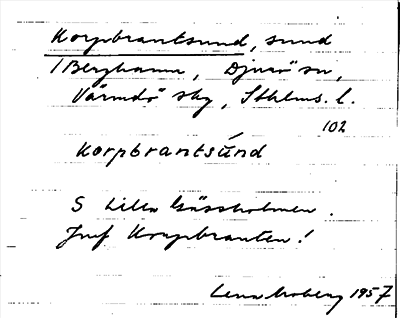 Korpbrantsund, sund
/Berghamn, Djurö sn,
Värmdö skg, Sthlms. l.
102
Korpbrantsúnd
S Lilla Gåssholmen.
Jmf Korpbranten!
Lena Moberg 1957